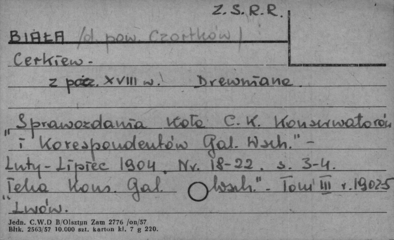 Z.S.R.R.
BIAŁA /d. pow. Czortków/
Cerkiew -
z pocz. XVIII w. Drewniana.
"Sprawozdania Koła C.K. Konserwatorów
i Korespondentów Gal. Wsch." -
Luty-Lipiec 1904. Nr. 18-22. s. 3-4.
Teka Kons. Gal. Wsch." - Tom III r. 1902-5
"Lwów.
Jedn. C.W.D B/Olsztyn Zam 2776 /on/57
Bltk. 2563/57 10.000 szt. karton kl. 7 g 220.